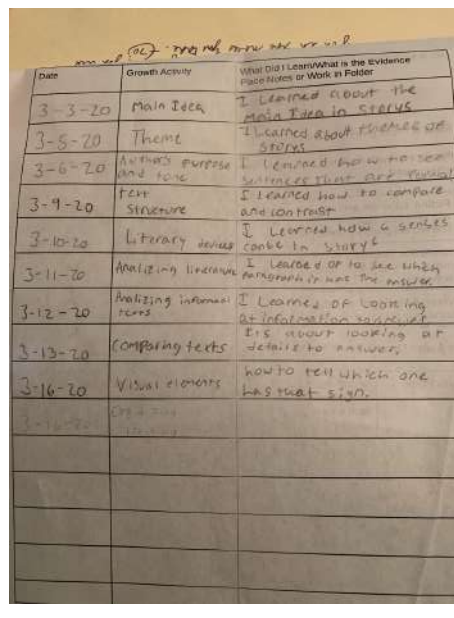 Date
Growth Activity
What Did I Learn/What is the Evidence
Place Notes or Work in Folder
3-3-20
Main Idea
I Learned about the
Main Idea in Storys
3-5-20
Theme
I Learned about themes of
Storys
3-6-20
Authors purpose
and tone
I learned how to see
sentences that are
3-9-20
text
structure
I Learned how to compare
and contrast
3-10-20
Literary devices
I Learned how a senses
can be in storys
3-11-20
Analizing literature
I Learded of to see which
paragraph it was the answer.
3-12-20
Analizing informal
texts
I Learned of Looking
at information to answer
3-13-20
Comparing texts
Its about looking at
details to answer.
3-16-20
Visual elements
how to tell which one
has that sign.